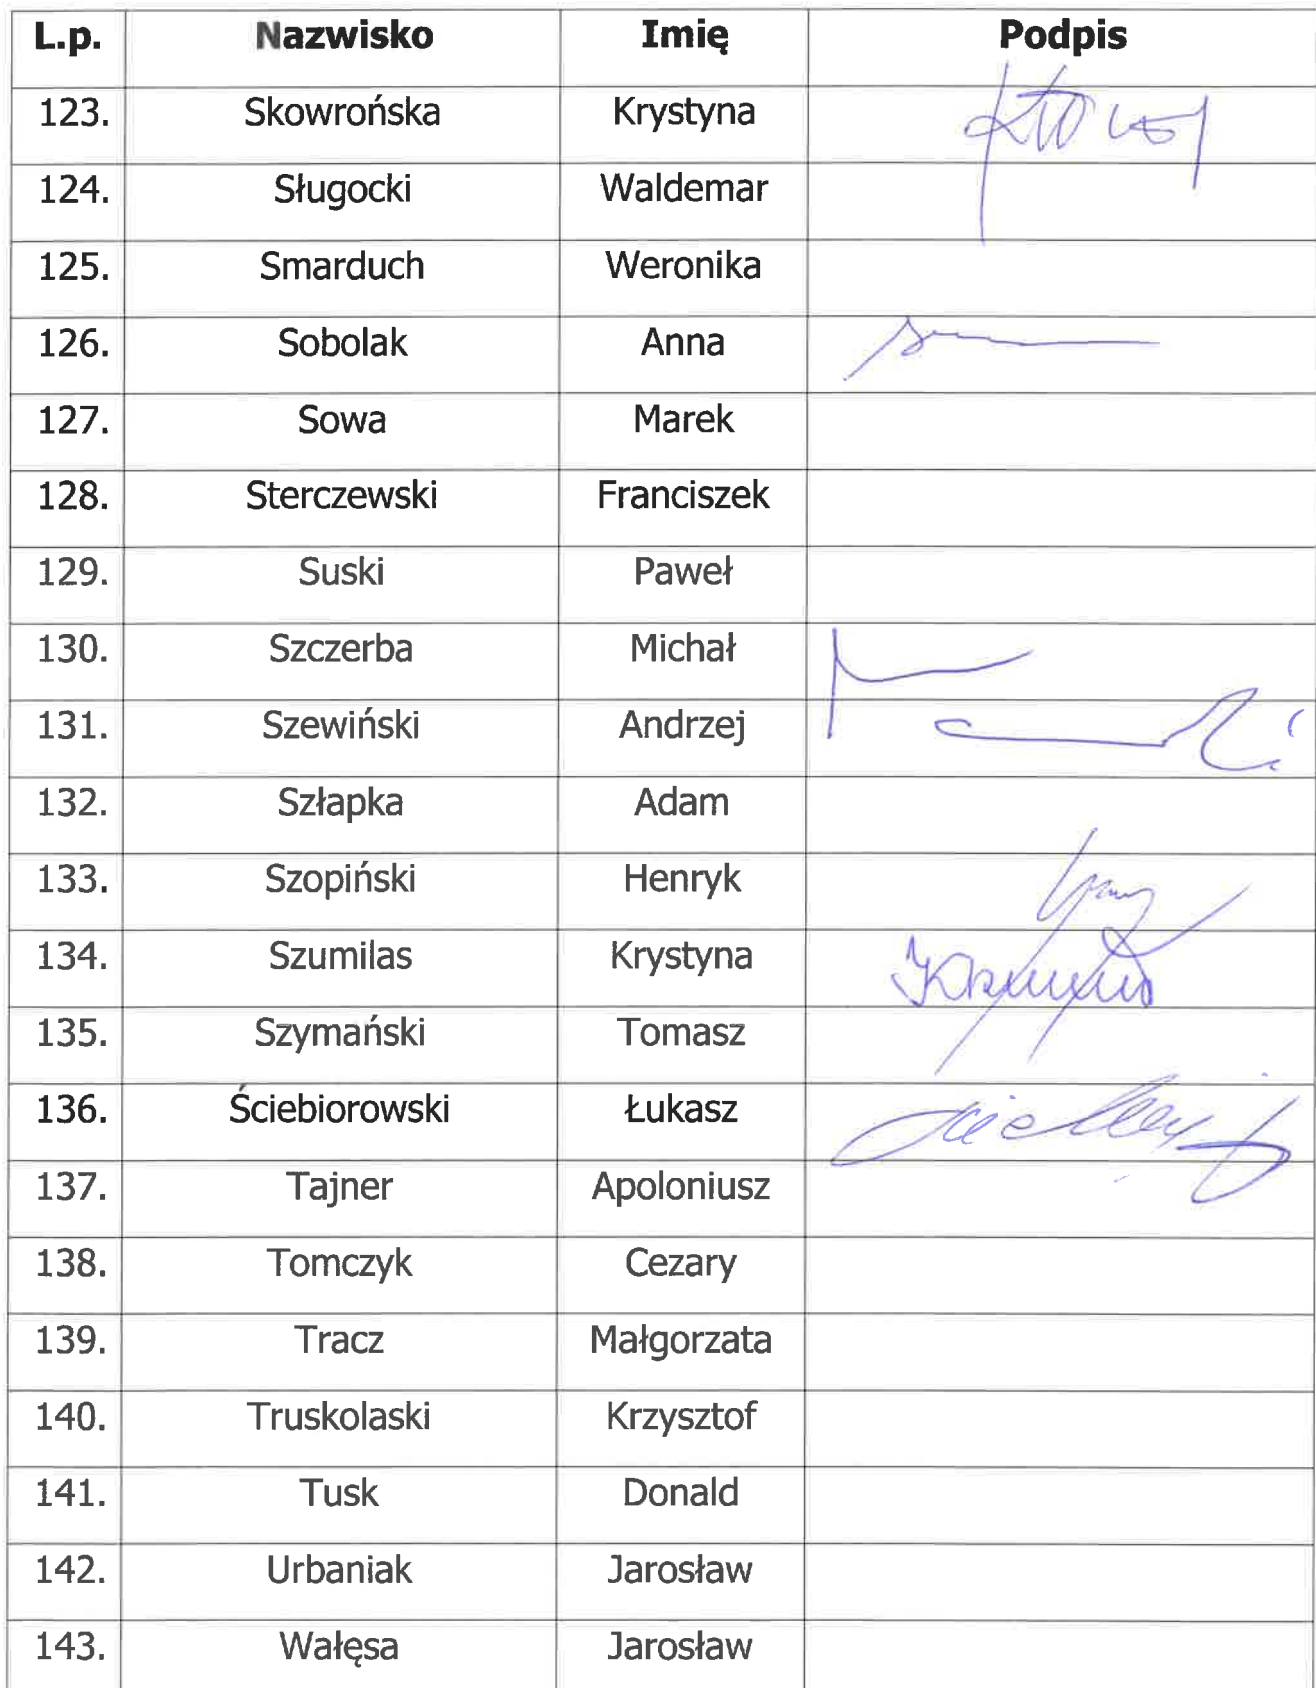 L.p. Nazwisko Imię Podpis
123. Skowrońska Krystyna
124. Sługocki Waldemar
125. Smarduch Weronika
126. Sobolak Anna
127. Sowa Marek
128. Sterczewski Franciszek
129. Suski Paweł
130. Szczerba Michał
131. Szewiński Andrzej
132. Szłapka Adam
133. Szopiński Henryk
134. Szumilas Krystyna
135. Szymański Tomasz
136. Ściebiorowski Łukasz
137. Tajner Apoloniusz
138. Tomczyk Cezary
139. Tracz Małgorzata
140. Truskolaski Krzysztof
141. Tusk Donald
142. Urbaniak Jarosław
143. Wałęsa Jarosław